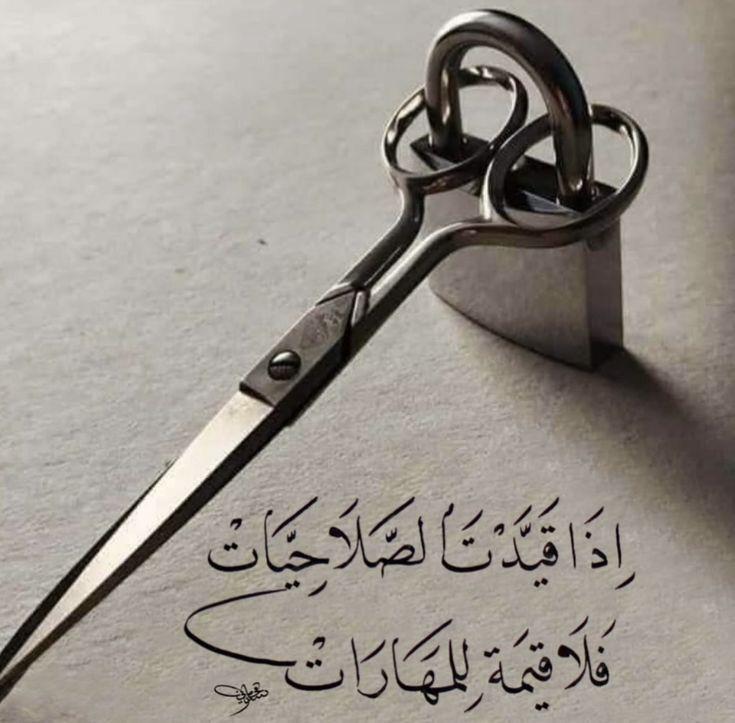 اِذَا قَيَّدْتَ الصَّلَاحِيَّاتْ
فَلَا قِيْمَة لِلمَهَارَاتْ